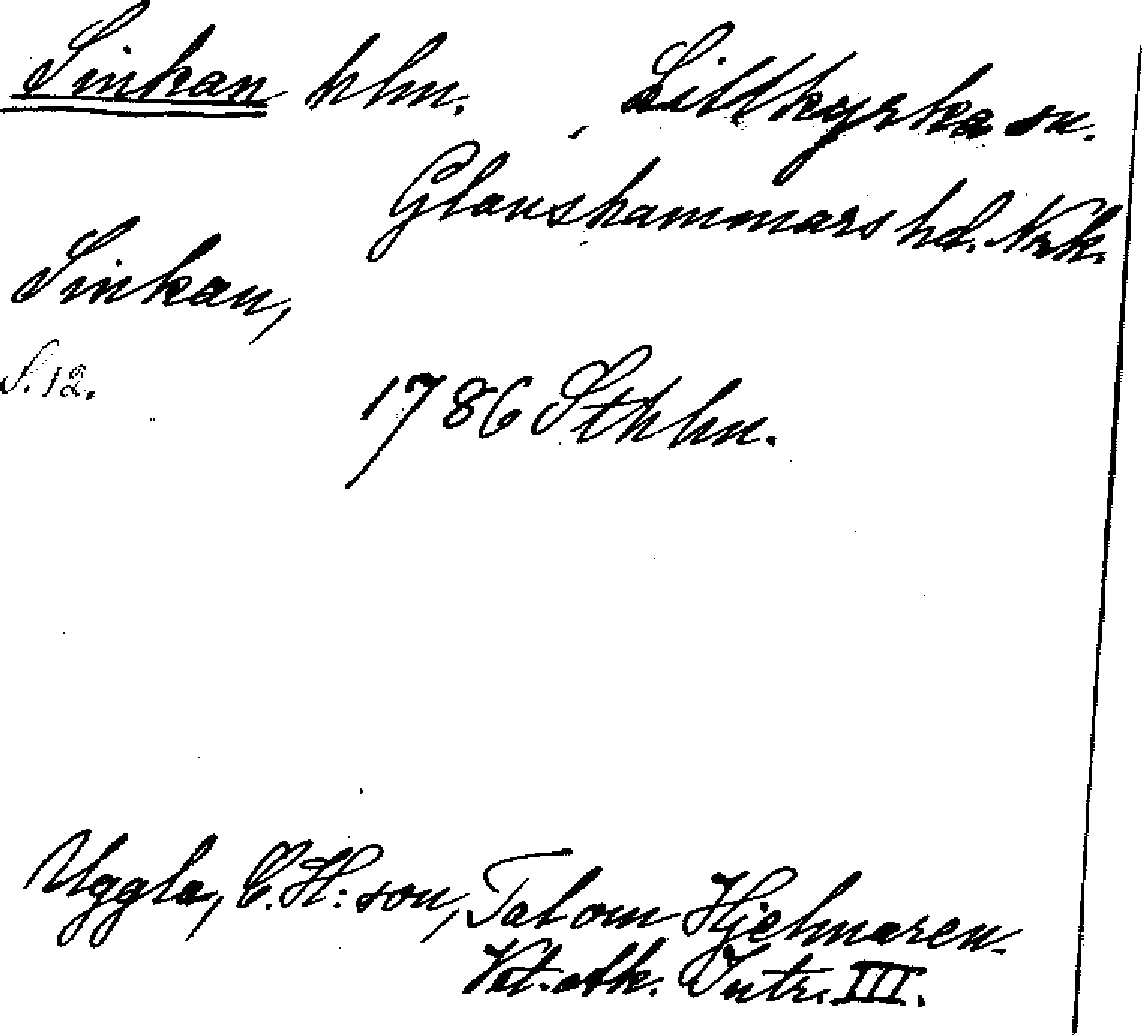 Sinkan hlm. , Lillkyrka sn.
Glanshammars hd. Nrk.
Sinkan,
S. 12.
1786 Sthlm.
Uggla, C. H:son, Tal om Hjelmaren.
Vet. ak. Intr. III.